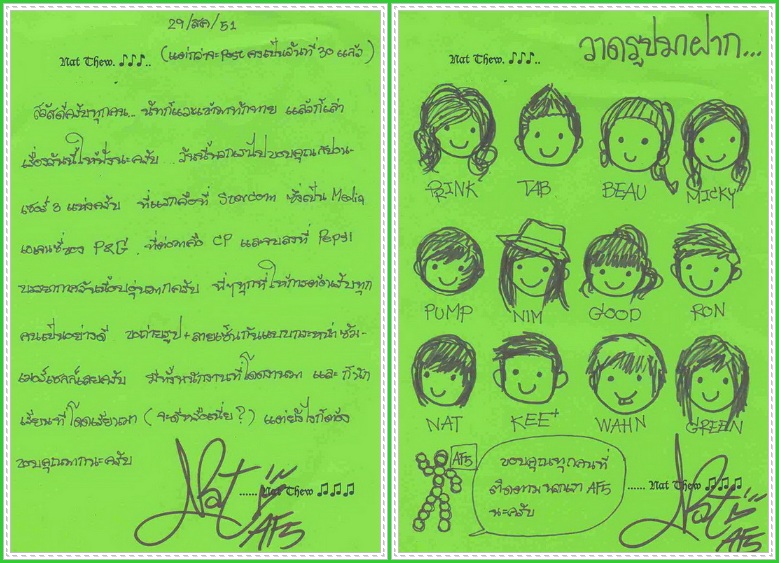 29/สค/51
Nat Thew. ♫♪♪.. (แต่กว่าจะ Post คงเป็นวันที่ 30 แล้ว)
สวัสดีครับทุกคน... นัทก็แวะเข้ามาทักทาย แล้วก็เล่า
เรื่องวันนี้ให้ฟังนะครับ ... วันนี้พวกเราไปขอบคุณสปอน-
เซอร์ 3 แห่งครับ ที่แรกคือที่ Starcom ซึ่งเป็น Media
เอเจนซี่ของ P&G. ที่ต่อมาคือ CP และจบลงที่ Pepsi
บรรยากาศวันนี้อบอุ่นมากครับ พี่ๆทุกที่ให้การต้อนรับทุก
คนเป็นอย่างดี ขอถ่ายรูป+ลายเซ็นกันแบบกระหน่ำซัม-
เมอร์เซลล์เลยครับ มีทั้งพนักงานที่โดดงานมา และ นักเ
เรียนที่โดดเรียนมา (จะดีหรือเนี่ย?) แต่ยังไงก็ต้อง
ขอบคุณมากนะครับ
...... Nat Thew ♫♫♫
Nat AF5
วาดรูปมาฝาก...
Nat Thew. ♫♪♪..
PRINK TAB BEAU MICKY
PUMP NIM GOOD RON
NAT KEE+ WAHN GREEN
AF5
ขอบคุณทุกคนที่
ติดตามพวกเรา AF5
นะครับ
...... Nat Thew ♫♫♫
Nat AF5